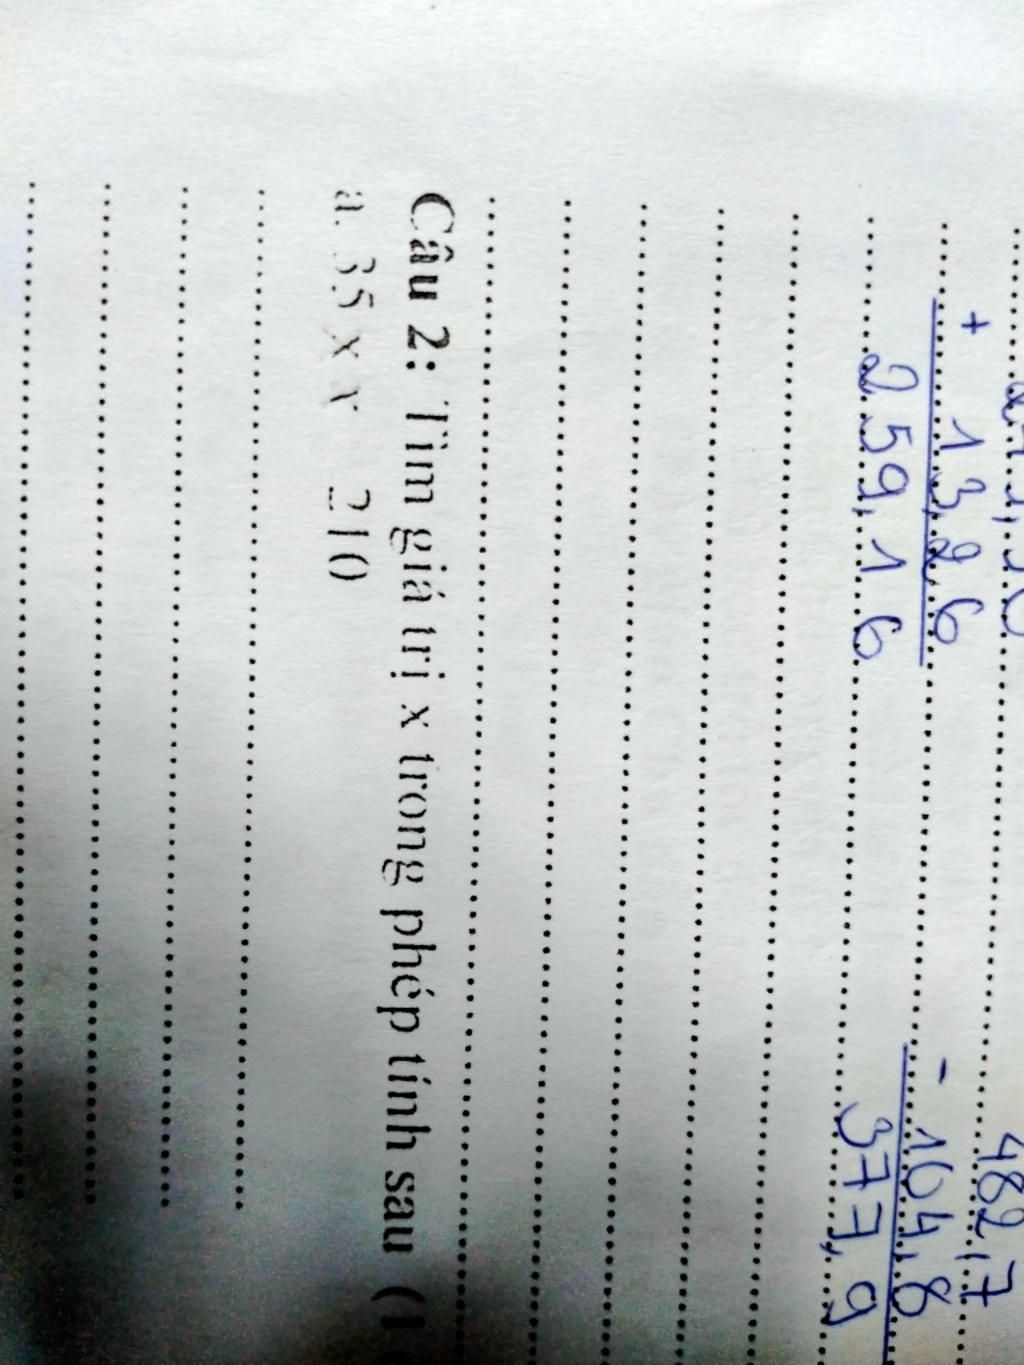 482,7
+ 13,26
- 104,8
259,16
377,9
Câu 2: Tìm giá trị x trong phép tính sau (1
a. 3,5 x x 210